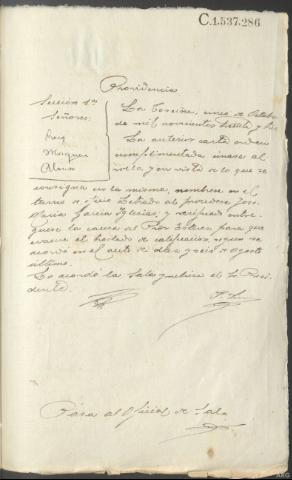 C.1.537.286
Providencia
Sección 1ª
Señores:
Roig
Alonso
La Coruña, cinco de Octubre
de mil novecientos treinta y
La anterior carta orden
cumplimentada únase al
rollo, y en vista de lo que se
consigna en la misma, nombrese en el
turno de oficio Letrado al procesado José
María García Iglesias, y verificado entre
guese la causa al para que
evacue el traslado de calificación, según se
acordó en el auto de diez y seis de Agosto
último.
Lo acordó la Sala y rubrica el Sr Presi
dente.
Pasa al Oficial de Sala
ARG